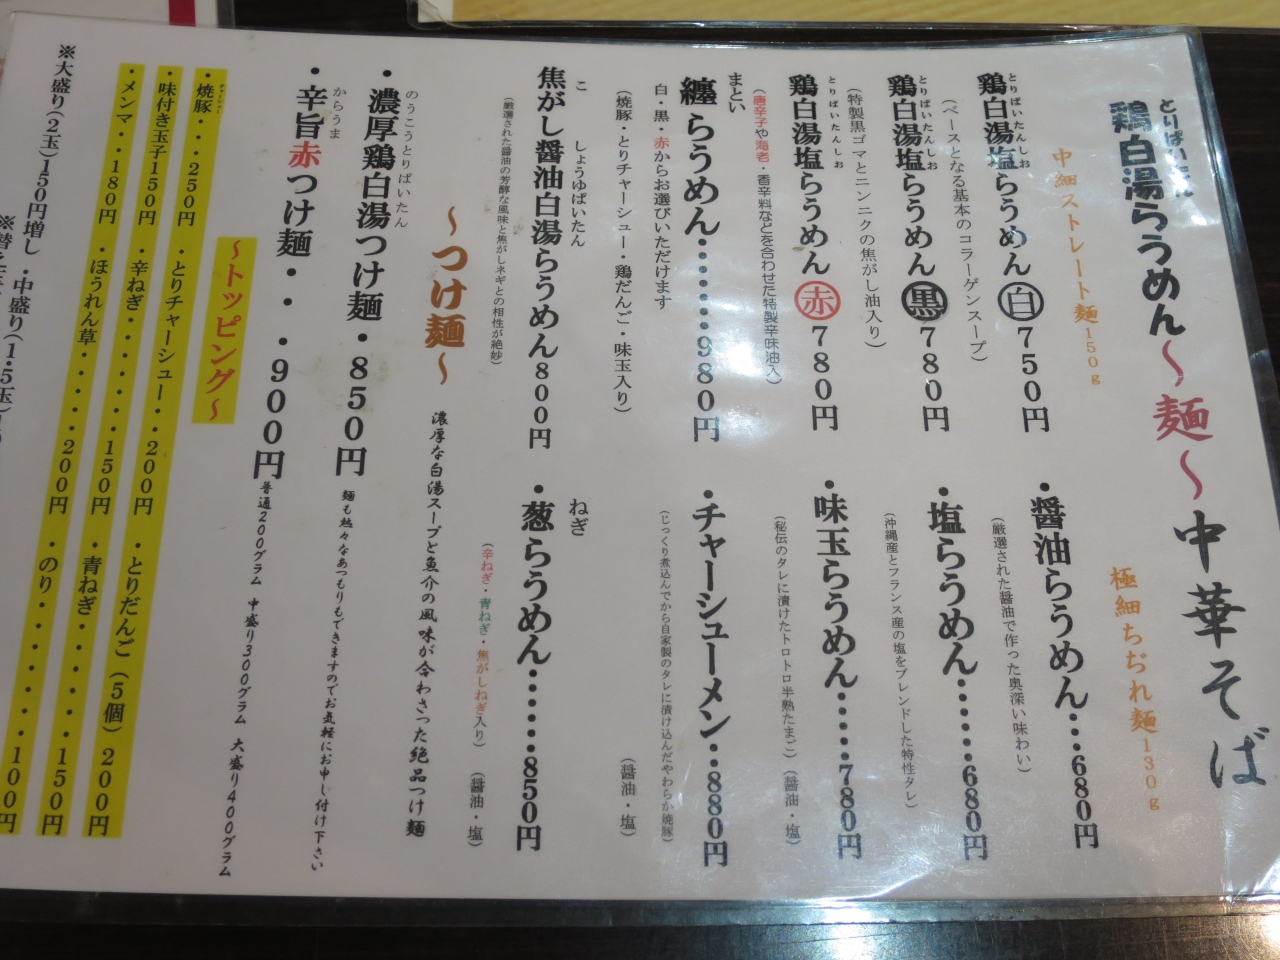 とりぱいたん
鶏白湯らうめん～麺～中華そば
中細ストレート麺150g
極細ちぢれ麺130g
とりぱいたんしお
鶏白湯塩らうめん白750円
(ベースとなる基本のコラーゲンスープ)
・醤油らうめん・・・680円
(厳選された醤油で作った奥深い味わい)
とりぱいたんしお
鶏白湯塩らうめん黒780円
(特製黒ゴマとニンニクの焦がし油入り)
・塩らうめん・・・・・680円
(沖縄産とフランス産の塩をブレンドした特性タレ)
とりぱいたんしお
鶏白湯塩らうめん赤780円
(唐辛子や海老・香辛料などを合わせた特製辛味油入)
・味玉らうめん・・・・・780円
(秘伝のタレに漬けたトロトロ半熟たまご)(醤油・塩)
まとい
纏らうめん・・・・・・・980円
白・黒・赤からお選びいただけます
(焼豚・とりチャーシュー・鶏だんご・味玉入り)
・チャーシューメン・・880円
(じっくり煮込んでから自家製のタレに漬け込んだやわらか焼豚)
(醤油・塩)
こ しょうゆぱいたん
焦がし醤油白湯らうめん800円
(厳選された醤油の芳醇な風味と焦がしネギとの相性が絶妙)
ねぎ
・葱らうめん・・・・・・850円
(辛ねぎ・青ねぎ・焦がしねぎ入り)(醤油・塩)
～つけ麺～
濃厚な白湯スープと魚介の風味が合わさった絶品つけ麺
のうこうとりぱいたん
・濃厚鶏白湯つけ麺・850円
麺も熱々なあつもりもできますのでお気軽にお申し付け下さい
からうま
・辛旨赤つけ麺・・・900円
普通200グラム 中盛り300グラム 大盛り400グラム
～トッピング～
チャーシュー
・焼豚・・・250円 ・とりチャーシュー・・200円 ・とりだんご(5個)200円
・味付き玉子150円 ・辛ねぎ・・・・・・150円 ・青ねぎ・・・・・・150円
・メンマ・・・180円 ・ほうれん草・・・・・200円 ・のり・・・・・・100円
※大盛り(2玉)150円増し ・中盛り(1.5玉)